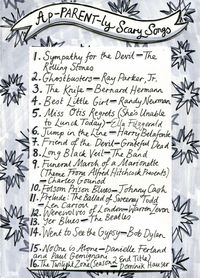 Ap-PARENT-ly Scary Songs
1. Sympathy for the Devil — The
Rolling Stones
2. Ghostbusters — Ray Parker, Jr.
3. The Knife — Bernard Hermann
4. Best Little Girl — Randy Newman
5. Miss Otis Regrets (She's Unable
to Lunch Today) — Ella Fitzgerald
6. Jump in the Line — Harry Belafonte
7. Friend of the Devil — Grateful Dead
8. Long Black Veil — The Band
9. Funeral March of a Marionette
(Theme From Alfred Hitchcock Presents)
— Charles Gounod
10. Folsom Prison Blues — Johnny Cash
11. Prelude: The Ballad of Sweeney Todd
— Len Cariou
12. Werewolves of London — Warren Zevon
13. Yer Blues — The Beatles
14. Went to See the Gypsy — Bob Dylan
15. No One is Alone — Danielle Ferland
and Paul Gemignani
16. The Twilight Zone (Season 2 End Title)
— Dominik Hauser